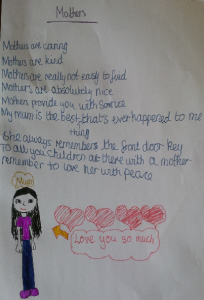 Mothers
Mothers are caring
Mothers are kind
Mothers are really not easy to find
Mothers are absolutely nice
Mothers provide you with
My mum is the best thing that's ever happened to me
She always remembers the front door key
To all you children out there with a mother
remember to love her with peace
Mum
Love you so much